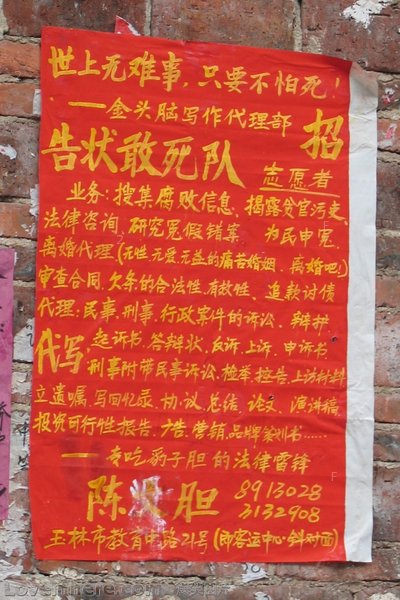 世上无难事，只要不怕死！
——金头脑写作代理部
招
告状敢死队
志愿者
业务：搜集腐败信息、揭露贪官污吏、
法律咨询、研究冤假错案、为民申冤、
离婚代理（无性、无爱、无益的痛苦婚姻、离婚吧！）
审查合同、欠条的合法性、有效性、追款讨债
代理：民事、刑事、行政案件的诉讼、辩护
代写
起诉书、答辩状、反诉、上诉、申诉书、
刑事附带民事诉讼、检举、控告、上访材料
立遗嘱、写回忆录、协议、总结、论文、演讲稿、
投资可行性报告、广告、营销、品牌策划书……
——专吃豹子胆的法律雷锋
陈 胆
8913028
3132908
玉林市教育中路21号（即客运中心斜对面）